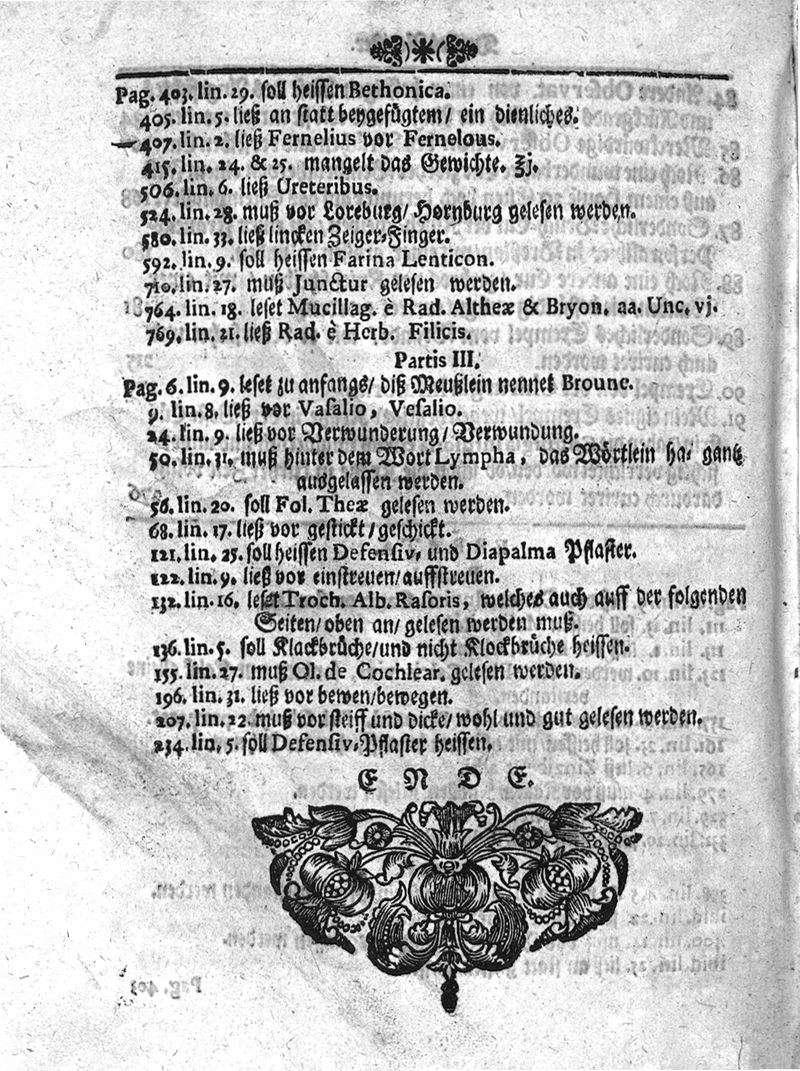 Pag. 403. lin. 29. soll heissen Bethonica.
405. lin. 5. ließ an statt beygefügtem/ ein dienliches.
407. lin. 2. ließ Fernelius vor Fernelous.
415. lin. 24. & 25. mangelt das Gewichte. ʒj.
506. lin. 6. ließ Ureteribus.
524. lin. 28. muß vor Loreburg/ Hornburg gelesen werden.
580. lin. 33. ließ lincken Zeiger-Finger.
592. lin. 9. soll heissen Farina Lenticon.
710. lin. 27. muß Junctur gelesen werden.
764. lin. 18. leset Mucillag. è Rad. Altheæ & Bryon. aa. Unc. vj.
769. lin. 21. ließ Rad. è Herb. Filicis.
Partis III.
Pag. 6. lin. 9. leset zu anfangs/ diß Meußlein nennet Broune.
9. lin. 8. ließ vor Vasalio, Vesalio.
24. lin. 9. ließ vor Verwunderung/ Verwundung.
50. lin. 31. muß hinter dem Wort Lympha, das Wörtlein ha- gantz
ausgelassen werden.
56. lin. 20. soll Fol. Theæ gelesen werden.
68. lin. 17. ließ vor gestickt/ geschickt.
121. lin. 25. soll heissen Defensiv- und Diapalma Pflaster.
122. lin. 9. ließ vor einstreuen/ auffstreuen.
132. lin. 16. leset Troch. Alb. Rasoris, welches auch auff der folgenden
Seiten/ oben an/ gelesen werden muß.
136. lin. 5. soll Klackbrüche/ und nicht Klockbrüche heissen.
155. lin. 27. muß Ol. de Cochlear. gelesen werden.
196. lin. 31. ließ vor bewen/ bewegen.
207. lin. 22. muß vor steiff und dicke/ wohl und gut gelesen werden.
234. lin. 5. soll Defensiv-Pflaster heissen.
E N D E.